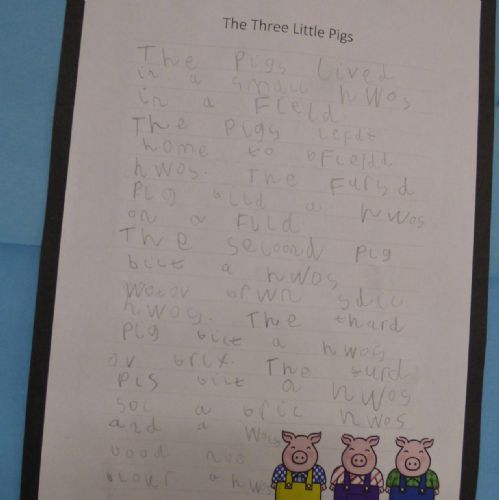 The Three Little Pigs
The Pigs lived
in a small hwos
in a Field.
The Pigs lefdt
home to bFieldd
hwos. The Fursd
Pig bild a hwos.
on a Fild
The second pig
bilt a hwos
hwos. The thard
Pig bilt a hwos
ov brix. The turd
Pis bilt a hwos
a bric hwos
and a
a hwos